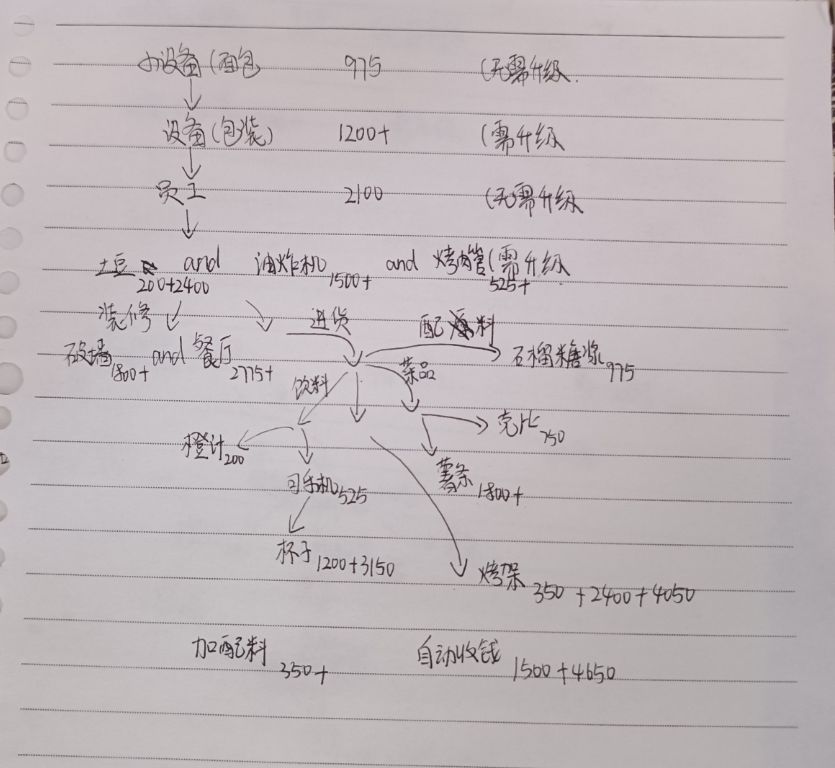 小设备(面包 975 (无需升级.
设备(包装) 1200+ (需升级
员工 2100 (无需升级
土豆 200+2400 and 油炸机 1500+ and 烤肉管 525+ (需升级
装修 进货 配料
破墙 1800+ and 餐厅 2775+ 石榴糖浆 975
饮料 菜品
橙汁 200 壳比 750
可乐机 525 薯条 1800+
杯子 1200+3150 烤架 350+2400+4050
加配料 350+ 自动收钱 1500+4650